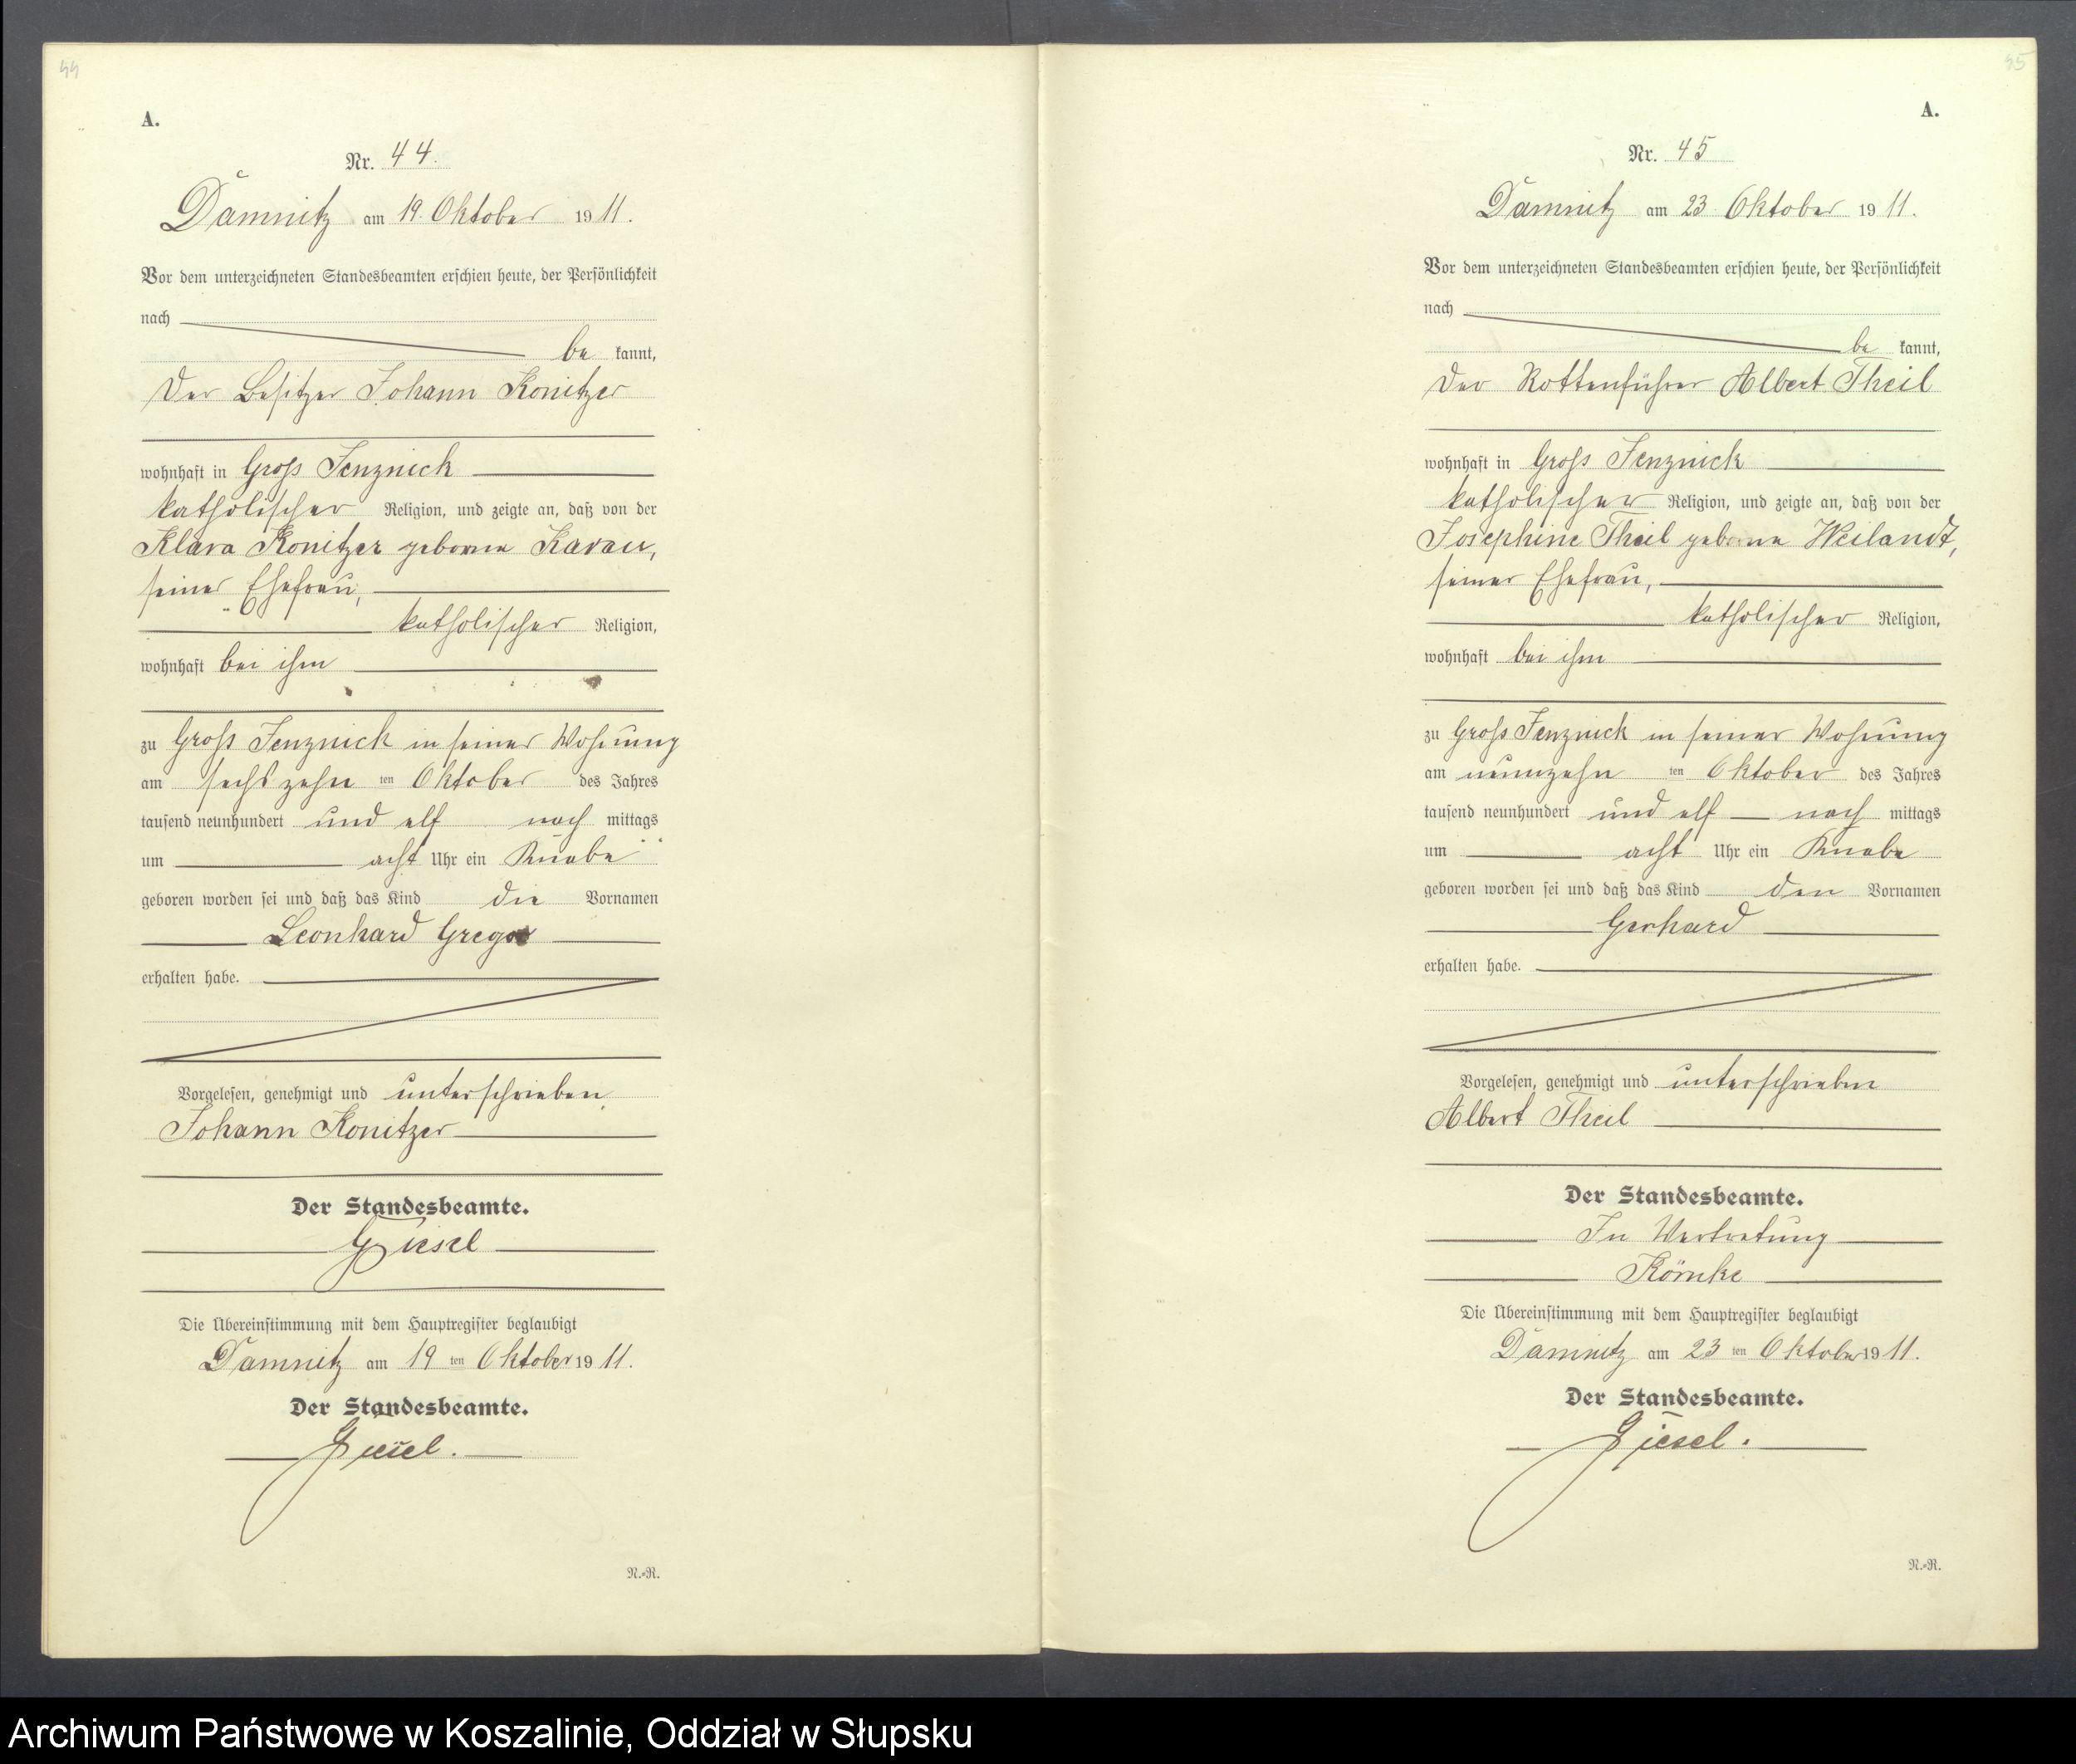 44
A.
Nr. 44.
Damnitz am 19. Oktober 1911.
Vor dem unterzeichneten Standesbeamten erschien heute, der Persönlichkeit
nach
be kannt,
der Besitzer Johann Konitzer
wohnhaft in Groß Jenznick
katholischer Religion, und zeigte an, daß von der
Klara Konitzer geborene Karau,
seiner Ehefrau,
katholischer Religion,
wohnhaft bei ihm
zu Groß Jenznick in seiner Wohnung
am sechszehn ten Oktober des Jahres
tausend neunhundert und elf nach mittags
um acht Uhr ein Knabe
geboren worden sei und daß das Kind die Vornamen
Leonhard Gregor
erhalten habe.
Vorgelesen, genehmigt und unterschrieben
Johann Konitzer
Der Standesbeamte.
Giesel
Die Übereinstimmung mit dem Hauptregister beglaubigt
Damnitz am 19 ten Oktober 1911.
Der Standesbeamte.
Giesel.
N.=R.
45
A.
Nr. 45
Damnitz am 23 Oktober 1911.
Vor dem unterzeichneten Standesbeamten erschien heute, der Persönlichkeit
nach
be kannt,
der Rottenführer Albert Theil
wohnhaft in Groß Jenznick
katholischer Religion, und zeigte an, daß von der
Josephine Theil geborene Weilandt,
seiner Ehefrau,
katholischer Religion,
wohnhaft bei ihm
zu Groß Jenznick in seiner Wohnung
am neunzehn ten Oktober des Jahres
tausend neunhundert und elf nach mittags
um acht Uhr ein Knabe
geboren worden sei und daß das Kind den Vornamen
Gerhard
erhalten habe.
Vorgelesen, genehmigt und unterschrieben
Albert Theil
Der Standesbeamte.
In Vertretung
Körnke
Die Übereinstimmung mit dem Hauptregister beglaubigt
Damnitz am 23 ten Oktober 1911.
Der Standesbeamte.
Giesel.
N.=R.
Archiwum Państwowe w Koszalinie, Oddział w Słupsku